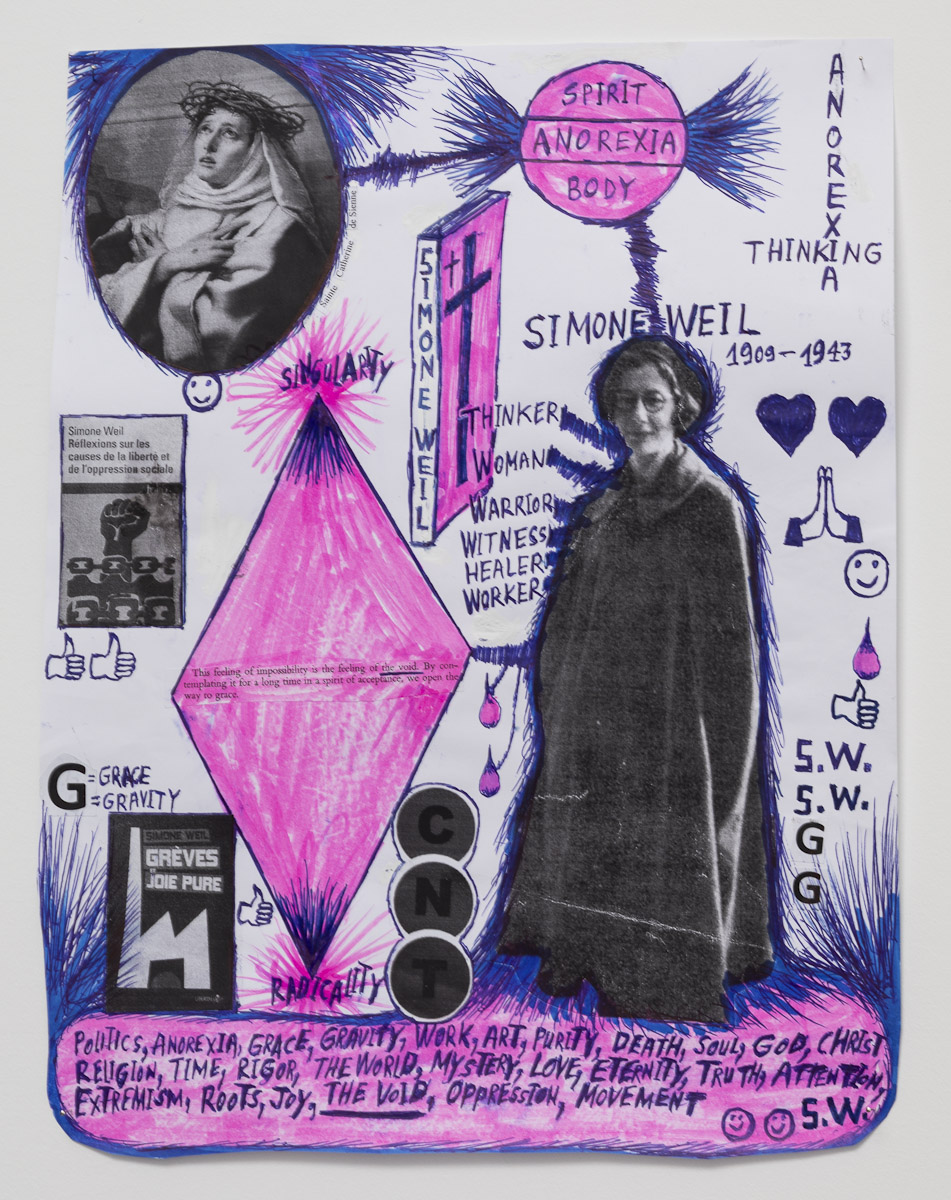 SPIRIT
ANOREXIA
BODY
ANOREXIA
THINKING
Sainte Catherine de Sienne
SIMONE WEIL
SIMONE WEIL
1909-1943
SINGULARITY
THINKER
WOMAN
WARRIOR
WITNESS
HEALER
WORKER
Simone Weil
Réflexions sur les
causes de la liberté et
de l'oppression sociale
This feeling of impossibility is the feeling of the void. By con-
templating it for a long time in a spirit of acceptance, we open the
way to grace.
G = GRACE
= GRAVITY
SIMONE WEIL
GRÈVES
ET
JOIE PURE
C
N
T
RADICALITY
S.W.
S.W.
G
G
POLITICS, ANOREXIA, GRACE, GRAVITY, WORK, ART, PURITY, DEATH, SOUL, GOD, CHRIST
RELIGION, TIME, RIGOR, THE WORLD, MYSTERY, LOVE, ETERNITY, TRUTH, ATTENTION,
EXTREMISM, ROOTS, JOY, THE VOID, OPPRESSION, MOVEMENT
S.W.